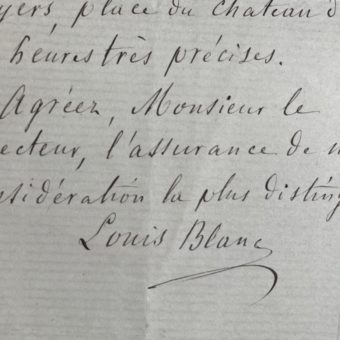 yers, place du château d
heures très précises.
Agréez, Monsieur le
ecteur, l'assurance de m
nsidération la plus disting
Louis Blanc